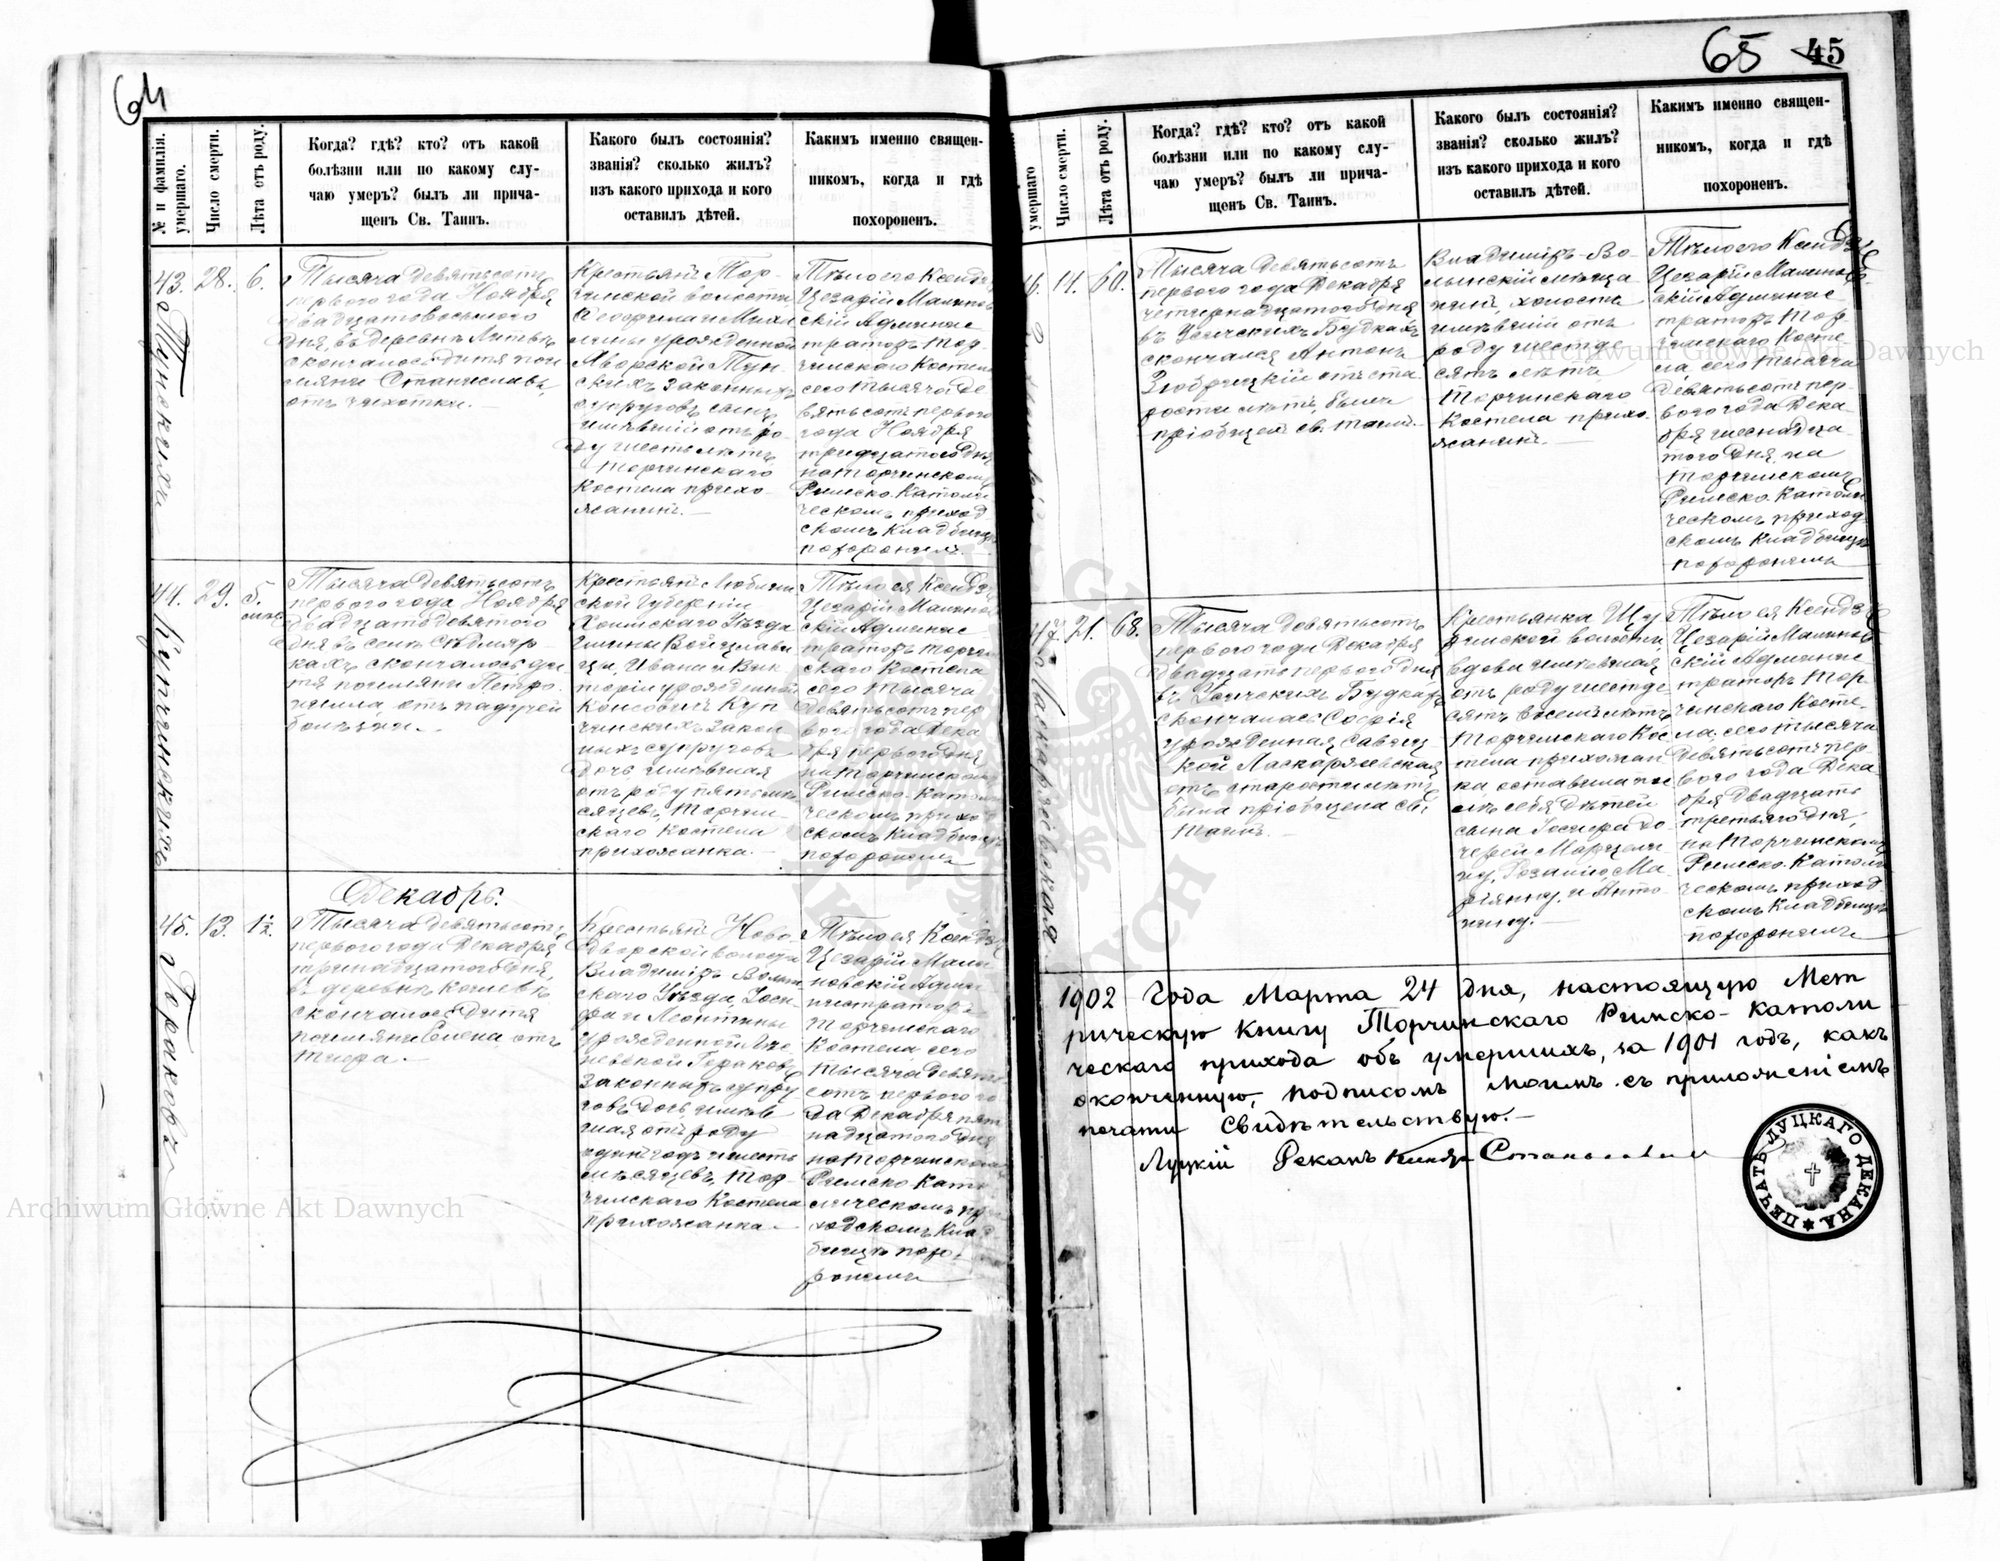 64
№ и фамилія.
умершаго.
Число смерти.
Лѣта отъ роду.
Когда? гдѣ? кто? отъ какой
болѣзни или по какому слу-
чаю умеръ? былъ ли прича-
щенъ Св. Таинъ.
Какого былъ состоянія?
званія? сколько жилъ?
изъ какого прихода и кого
оставилъ дѣтей.
Какимъ именно священ-
никомъ, когда и гдѣ
похороненъ.
43.
28.
6.
Тысяча девятьсотъ
перваго года Ноября
двадцатовосьмого
дня, въ деревнѣ
скончалось дитя по
имяни Станиславъ,
отъ чахотки.
Крестьянъ Тор-
чинской волости
урожденной
Яворской Тун-
скихъ законныхъ
супруговъ сынъ
имѣвшій отъ ро-
ду шесть лѣтъ
Торчинскаго
Костела прихо-
жанинъ.
Тѣло его Ксендзъ
Цезарій Малинов
скій Админис
траторъ Тор-
чинскаго Костела
сего тысяча де
вятьсотъ перваго
года Ноября
тридцатого дня
на Торчинскомъ
Римско-Католи
ческомъ приход
скомъ кладбищѣ
похоронилъ.
44.
29.
5.
Тысяча девятьсотъ
перваго года Ноября
двадцатодевятого
дня въ
скончалось ди
тя по имяни Петро-
нелла, отъ падучей
болѣзни.
Крестьянъ Люблин
ской Губерніи
Холмскаго Уѣзда
Гмины Войславы
цы, Ивана и Вик
торіи урожденной
Куп
чинскихъ закон
ныхъ супруговъ
дочь имѣвшая
отъ роду пять мѣ
сяцевъ, Торчин
скаго Костела
прихожанка.
Тѣло ея Ксендзъ
Цезарій Малинов
скій Админис
траторъ Торчин
скаго Костела
сего тысяча
девятьсотъ пер
вого года Дека
бря перваго дня
на Торчинскомъ
Римско-Католи
ческомъ приход
скомъ кладбищѣ
похоронилъ
Декабрь.
45.
13.
1½.
Тысяча девятьсотъ
перваго года Декабря
тринадцатого дня,
въ деревнѣ
скончалось дитя
по имяни Елена, отъ
тифа.
Крестьянъ Ново-
дворской волости
Владимір-Волын
скаго Уѣзда,
и Леонтины
урожденной
законныхъ супру
говъ дочь, имѣв
шая отъ роду
одинъ годъ и шесть
мѣсяцевъ, Тор-
чинскаго Костела
прихожанка.
Тѣло ея Ксендзъ
Цезарій Мали
новскій Адми
нистраторъ
Торчинскаго
Костела, сего
тысяча девять
сотъ перваго го
да Декабря пят
надцатого дня
на Торчинскомъ
Римско-Като
лическомъ при
ходскомъ клад
бищѣ похо-
ронилъ
65
45
умершаго
Число смерти.
Лѣта отъ роду.
Когда? гдѣ? кто? отъ какой
болѣзни или по какому слу-
чаю умеръ? былъ ли прича-
щенъ Св. Таинъ.
Какого былъ состоянія?
званія? сколько жилъ?
изъ какого прихода и кого
оставилъ дѣтей.
Какимъ именно священ-
никомъ, когда и гдѣ
похороненъ.
14.
60.
Тысяча девятьсотъ
перваго года Декабря
четырнадцатого дня
въ Усичскихъ Будкахъ
скончался Антонъ
отъ ста
рости лѣтъ, былъ
пріобщенъ св. таинъ.
Владимір-Во-
лынскій мѣща
нинъ, холостъ
имѣвшій отъ
роду шестьде
сятъ лѣтъ
Торчинскаго
Костела прихо-
жанинъ.
Тѣло его Ксендзъ
Цезарій Малинов
скій Админис
траторъ Тор
чинскаго Косте-
ла сего тысяча
девятьсотъ пер-
вого года Дека-
бря шеснадца-
того дня, на
Торчинскомъ
Римско-Католи
ческомъ приход-
скомъ кладбищѣ
похоронилъ
47.
21.
68.
Тысяча девятьсотъ
перваго года Декабря
двадцать перваго дня
въ Усичскихъ Будкахъ
скончалась Софія
урожденная Савиц-
кой Ласкаржевская
отъ старости лѣтъ
была пріобщена св.
Таинъ.
Крестьянка Щу
ринской волости,
вдова имѣвшая
отъ роду шестьде-
сятъ восемь лѣтъ
Торчинскаго Кос
тела прихожан
ка оставила по
слѣ себя дѣтей
сына Іосифа до-
черей Марцели
ну, Розалію, Ма-
ріянну, и Анто-
нину.
Тѣло ея Ксендзъ
Цезарій Малинов
скій Админис
траторъ Тор
чинскаго Косте-
ла, сего тысяча
девятьсотъ пер-
вого года Дека
бря двадцать
третьяго дня,
на Торчинскомъ
Римско-Католи
ческомъ приход
скомъ кладбищѣ
похоронилъ
Ласкаржевская
1902 Года Марта 24 дня, настоящую Мет
рическую Книгу Торчинскаго Римско-католи
ческаго прихода объ умершихъ, за 1901 годъ, какъ
оконченную, подписомъ моимъ съ приложеніемъ
печати Свидѣтельствую.
Луцкій Деканъ Ксендзъ
ПЕЧАТЬ ЛУЦКАГО ДЕКАНА
Archiwum Główne Akt Dawnych
Archiwum Główne Akt Dawnych